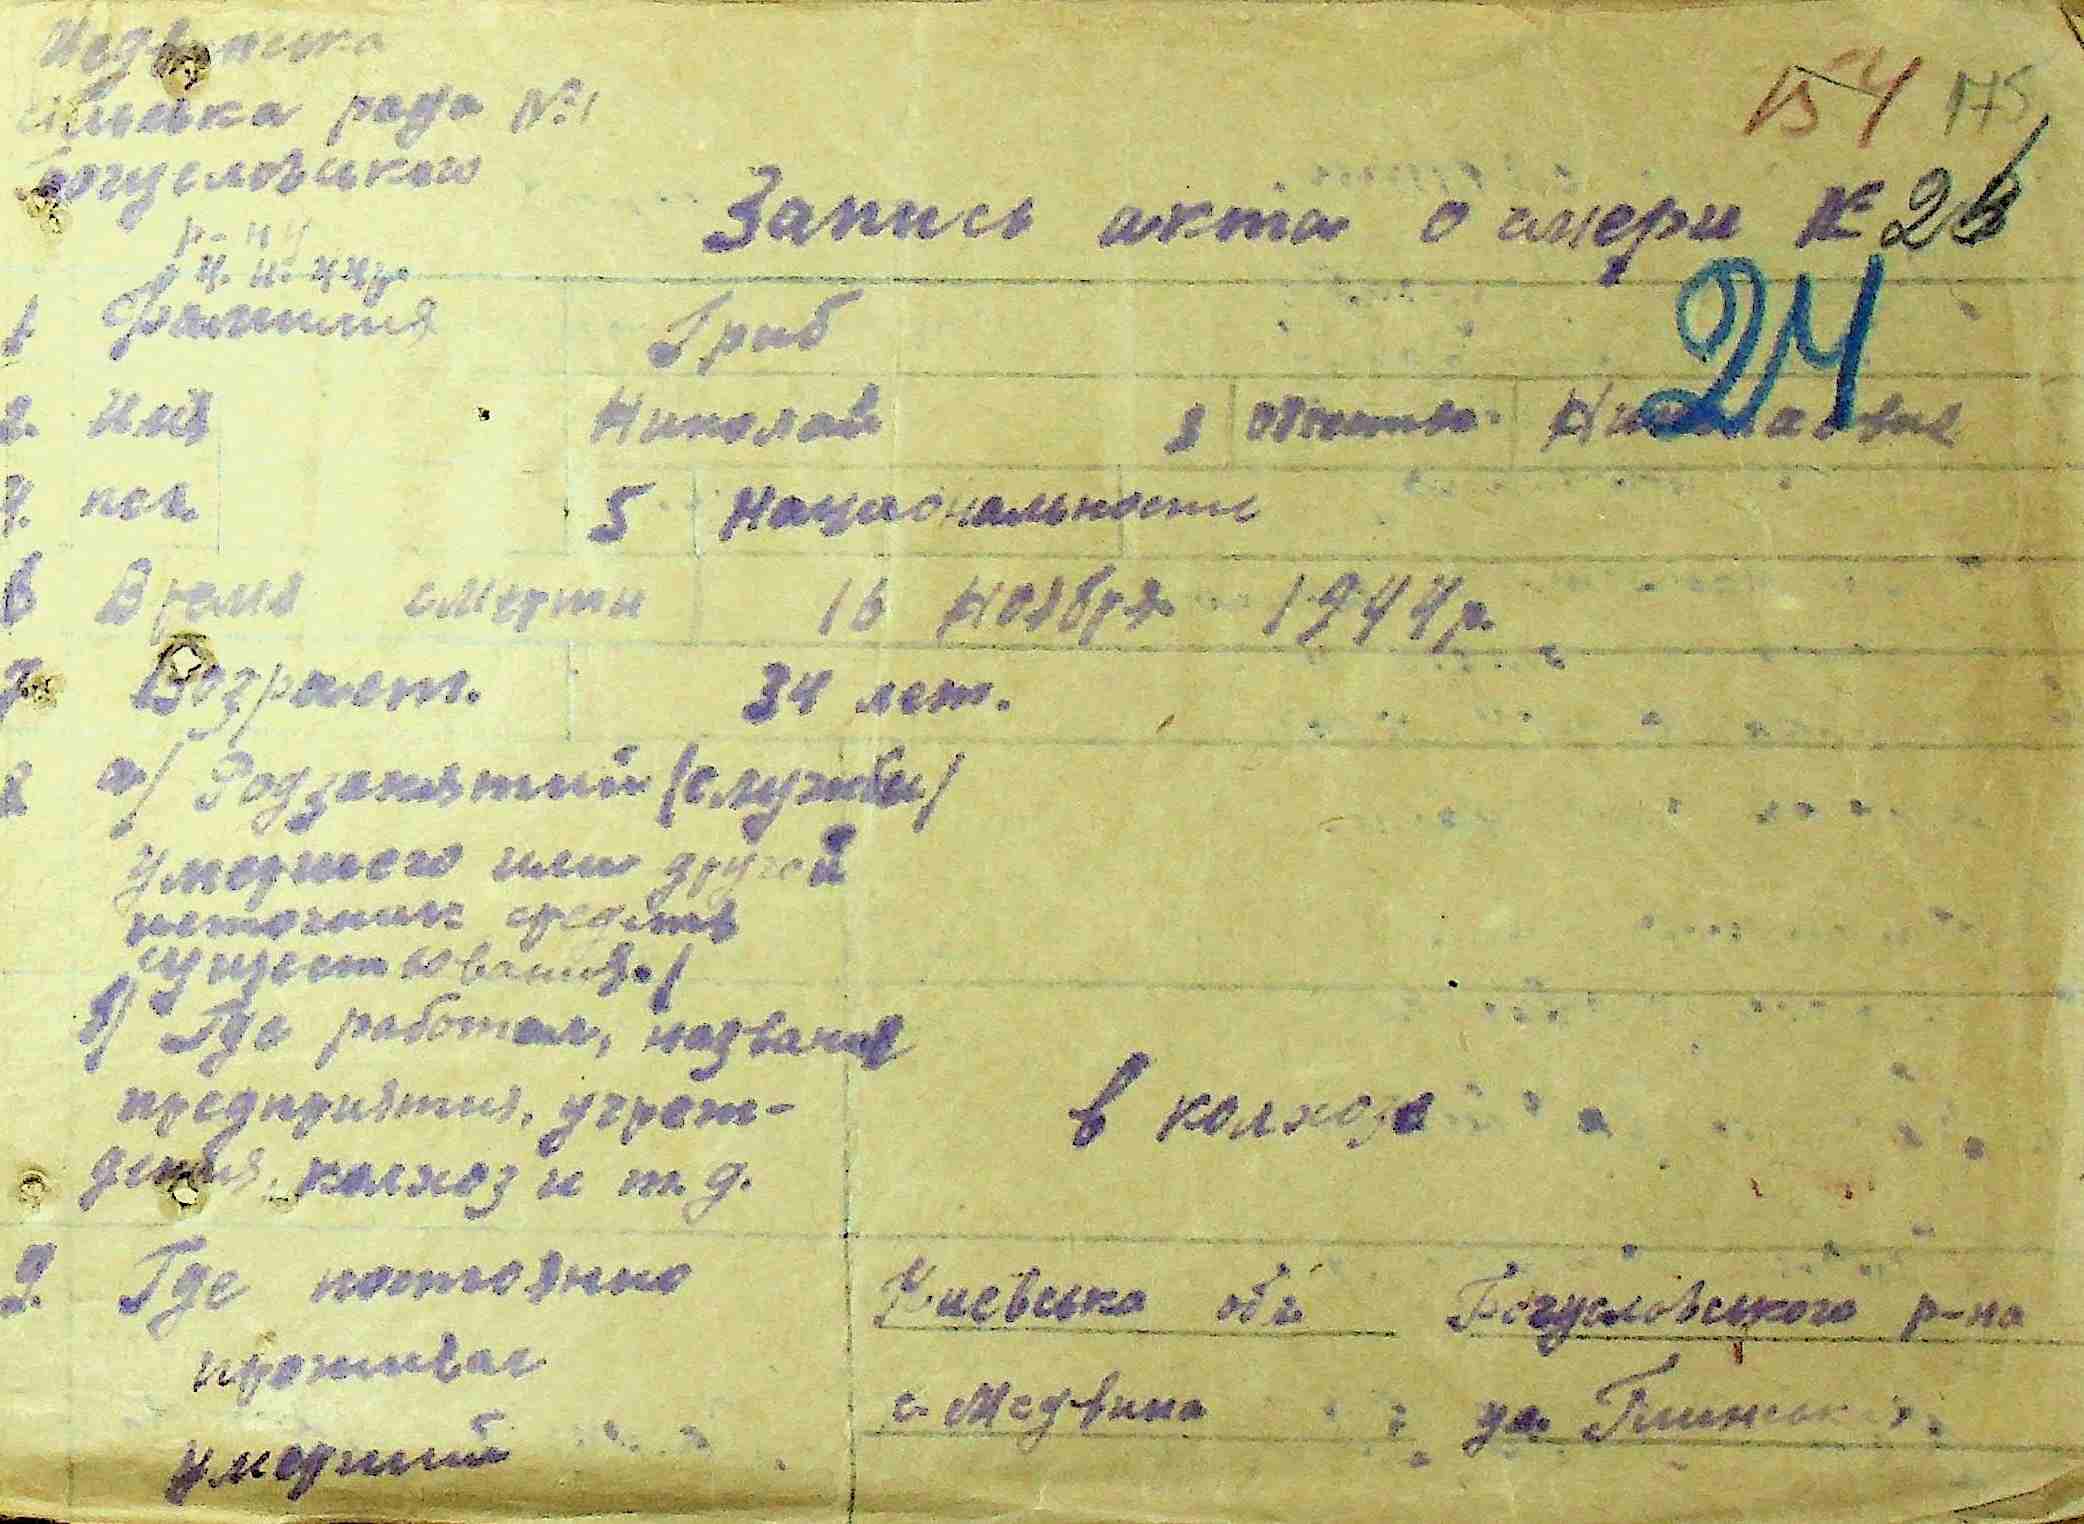 сільська рада №1
Богуславського
р-ну
154 175
Запись акта о смери № 23
24
1 Фамилия Гриб
2. Имя Николай 3 отчество Николаевич
4. пол. 5 Национальность
6 Время смерти 16 Ноября 1944 р.
7. Возраст. 34 лет.
8 а/ Род занятий /службы/
умершего или другой
источник средств
существования./
б/ Где работал, названия
предприятия, учреж-
дения, колхоз и т. д.
в колхозе
9. Где постоянно Киевська об. Богуславського р-на
проживал
с. Медвина ул.
умерший